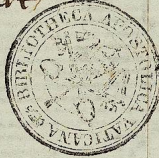 BIBLIOTHECA APOSTOLICA VATICANA